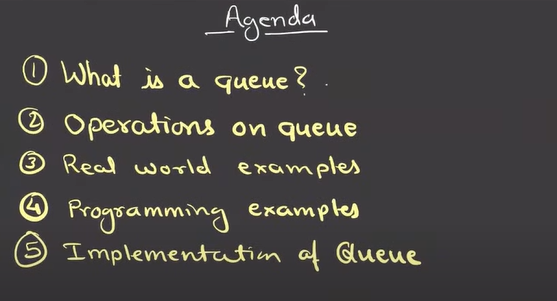 Agenda
① What is a queue?
② Operations on queue
③ Real world examples
④ Programming examples
⑤ Implementation of Queue